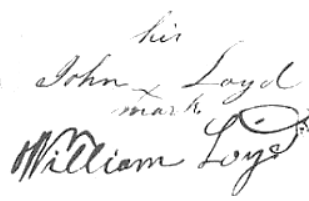 his
John x Loyd
mark
William Loyd